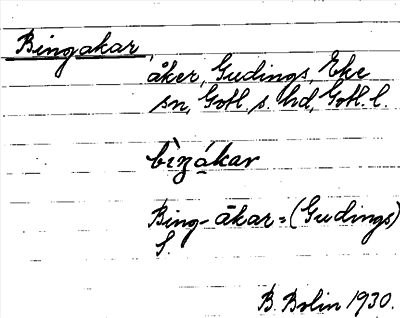 Bingakar,
åker, Gudings, Eke
sn, Gotl. s. hd, Gotl. l.
bìŋákar
Bing-åkar = (Gudings)
S.
B. Bolin 1930.